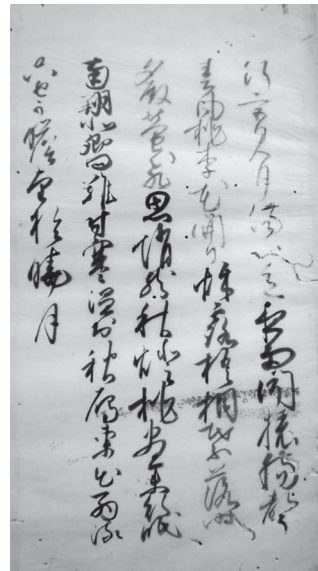 行宮見月傷心色夜雨聞猿腸断声
春風桃李花開日秋露梧桐葉落時
夕殿蛍飛思悄然秋燈挑尽未能眠
南翔北嚮難付寒温於秋鴈東出西流
只寄瞻望於暁月